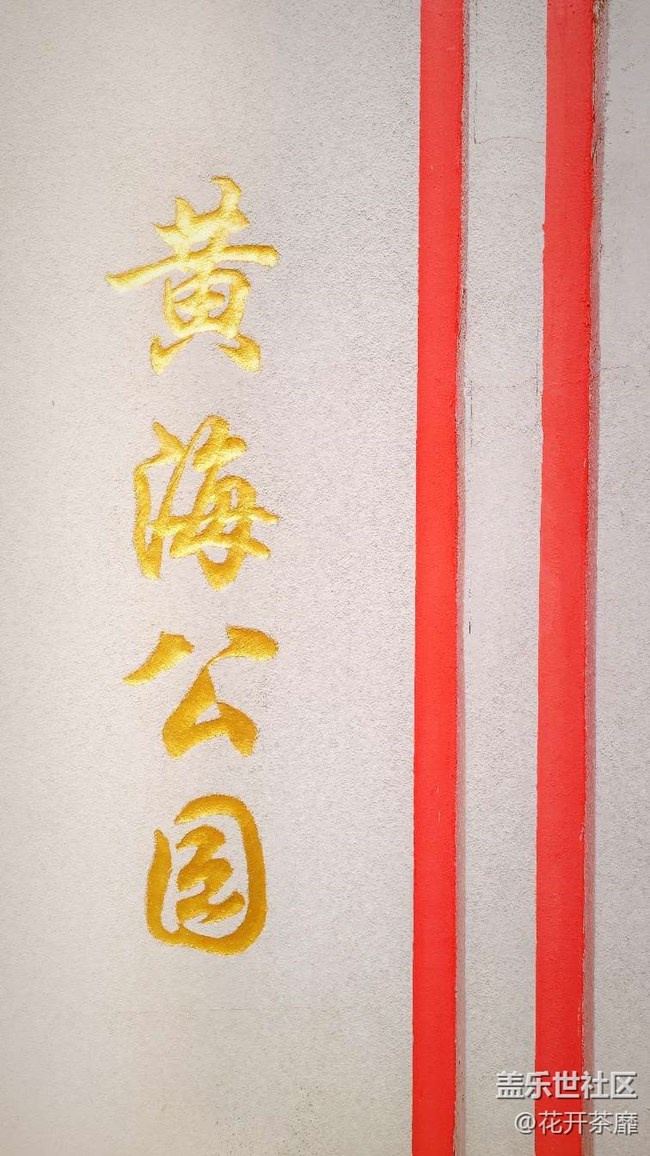 黄海公园
盖乐世社区
@花开茶靡